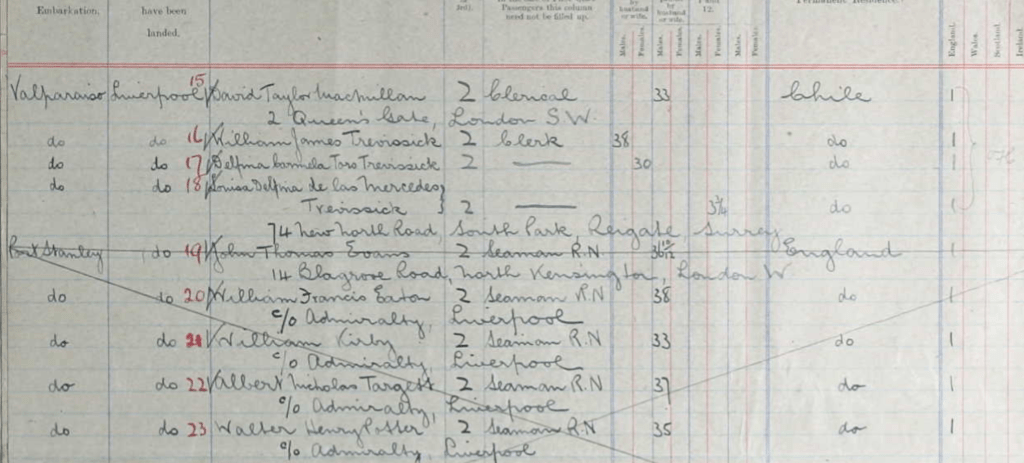 Embarkation. have been landed. Passengers this column need not be filled up. by husband or wife. husband or wife. 12. Permanent Residence.
Males. Females. Males. Females. Males. Females. Males. Females. England. Wales. Scotland. Ireland.
Valparaiso Liverpool 15 David Taylor Macmillan 2 Clerical 33 Chile 1
2 Queen's Gate, London S.W.
do do 16 William James Trevissick 2 Clerk 38 do 1
do do 17 Delfina Carmela Toro Trevissick 2 — 30 do 1
do do 18 Louisa Delfina de las Mercedes
Trevissick } 2 — do 1
74 New North Road, South Park, Reigate, Surrey
Port Stanley do 19 John Thomas Evans 2 Seaman R.N England 1
14 Blagrove Road, North Kensington, London W
do do 20 William Francis Eaton 2 Seaman R.N 38 do 1
c/o Admiralty, Liverpool
do do 21 William Kirby 2 Seaman R.N 33 do 1
c/o Admiralty, Liverpool
do do 22 Albert Nicholas Targett 2 Seaman R.N 37 do 1
c/o Admiralty, Liverpool
do do 23 Walter Henry Potter 2 Seaman R.N 35 do 1
c/o Admiralty, Liverpool